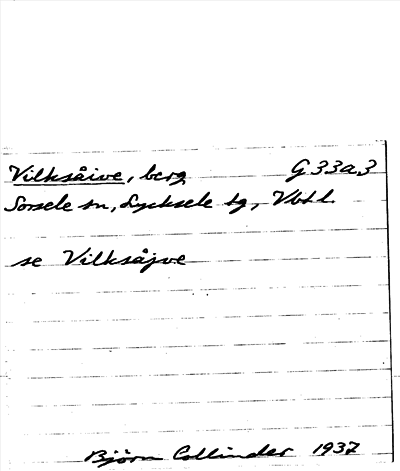 Vilksåive, berg G 33a3
Sorsele sn, Lycksele tg, Vbtl.
se Vilksåjve
Björn Collinder 1937